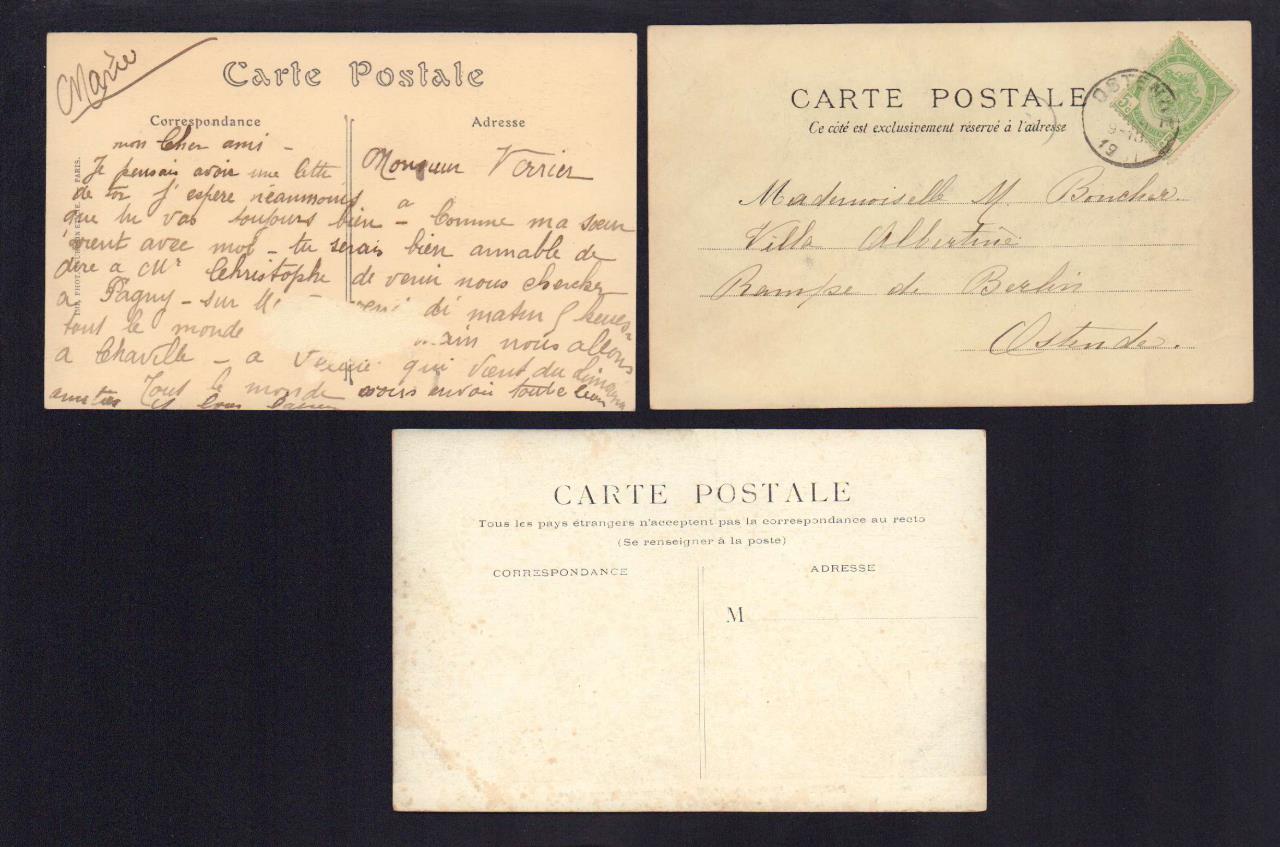 Marie
Carte Postale
Correspondance
Adresse
mon Cher ami -
Monsieur Verrier
Je pensais avoir une lettre
de toi j'espere néanmoins
que tu vas toujours bien - Comme ma sœur
vient avec moi - tu serais bien aimable de
dire a Mr Christophe de venir nous chercher
a Pagny - sur di matin
tout le monde nous allons
a Chaville - a qui vient du
amitiés Tout le monde vous envoi toute leur
CARTE POSTALE
Ce côté est exclusivement réservé à l'adresse
OSTENDE
19
Mademoiselle M. Boucher
Villa Albertine
Rampe de Berlin
Ostende.
CARTE POSTALE
Tous les pays étrangers n'acceptent pas la correspondance au recto
(Se renseigner à la poste)
CORRESPONDANCE
ADRESSE
M